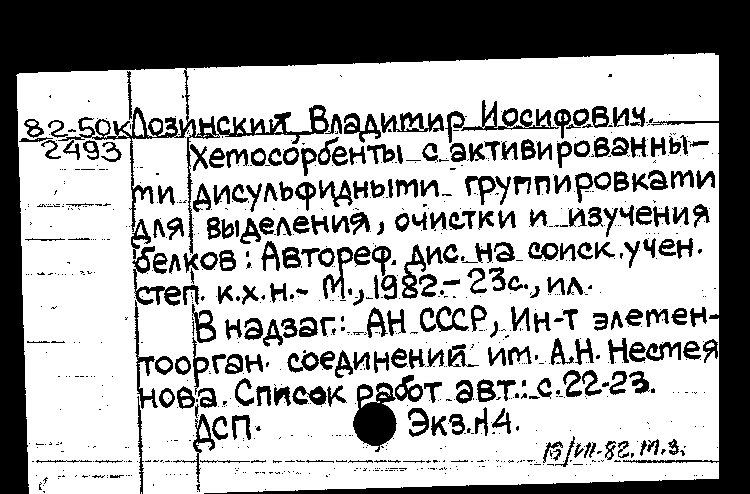 82-50к Лозинский, Владимир Иосифович.
2493 Хемосорбенты с активированны-
ми дисульфидными группировками
для выделения, очистки и изучения
белков: Автореф. дис. на соиск. учен.
степ. к.х.н.- М., 1982.- 23с., ил.
В надзаг.: АН СССР, Ин-т элемен-
тоорган. соединений им. А.Н. Несмея
нова. Список работ авт.: с.22-23.
ДСП. Экз.№4.
16/VII-82. М.З.